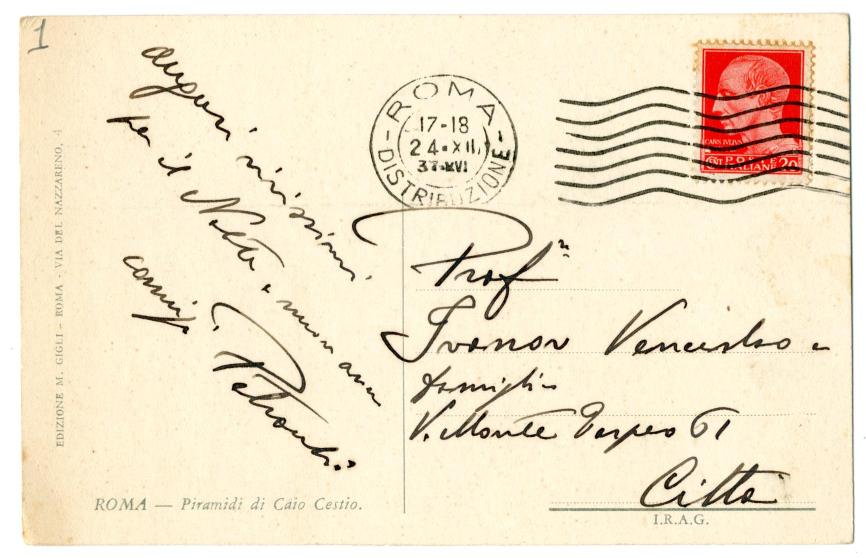 1
auguri vivissimi
per il Natale e nuovo anno
ROMA
17-18
24·XII
37·XVI
DISTRIBUZIONE
CAES IVLIVS
CENT POSTE 20
ITALIANE
Prof
Ivanov Venceslao e
famiglia
V. Monte Tarpeo 61
Città
I.R.A.G.
ROMA — Piramidi di Caio Cestio.
EDIZIONE M. GIGLI - ROMA - VIA DEL NAZZARENO, 4